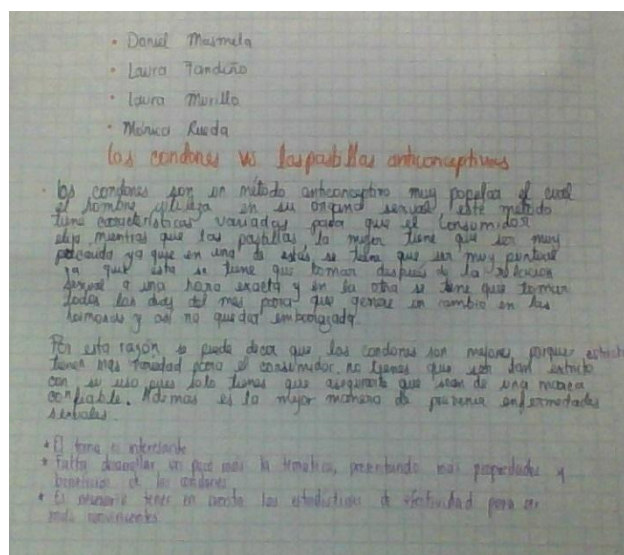 • Daniel Musmela
• Laura Fandiño
• Laura Murillo
• Mónica Rueda
los condones vs. las pastillas anticonceptivas
• los condones son un método anticonceptivo muy popular el cual
el hombre utiliza en su organo sexual este método
tiene características variadas para que el consumidor
elija mientras que las pastillas la mujer tiene que ser muy
ya que en una de estas se tiene que ser muy puntual
ya que esta se tiene que tomar después de la relacion
sexual a una hora exacta y en la otra se tiene que tomar
todos los dias del mes para que genere un cambio en las
hormonas y asi no quedar embarazada.
Por esta razón se puede decir que los condones son mejores, porque
tienen mas variedad para el consumidor, no tienes que ser tan estricto
con su uso pues solo tienes que asegurarte que sean de una marca
confiable. Ademas es la mejor manera de prevenir enfermedades
sexuales.
* El tema es interesante
* Falta desarrollar un poco más la temática, presentando mas propiedades y
beneficios de los condones
* Es necesario tener en cuenta las estadísticas de efectividad para ser
más convincentes